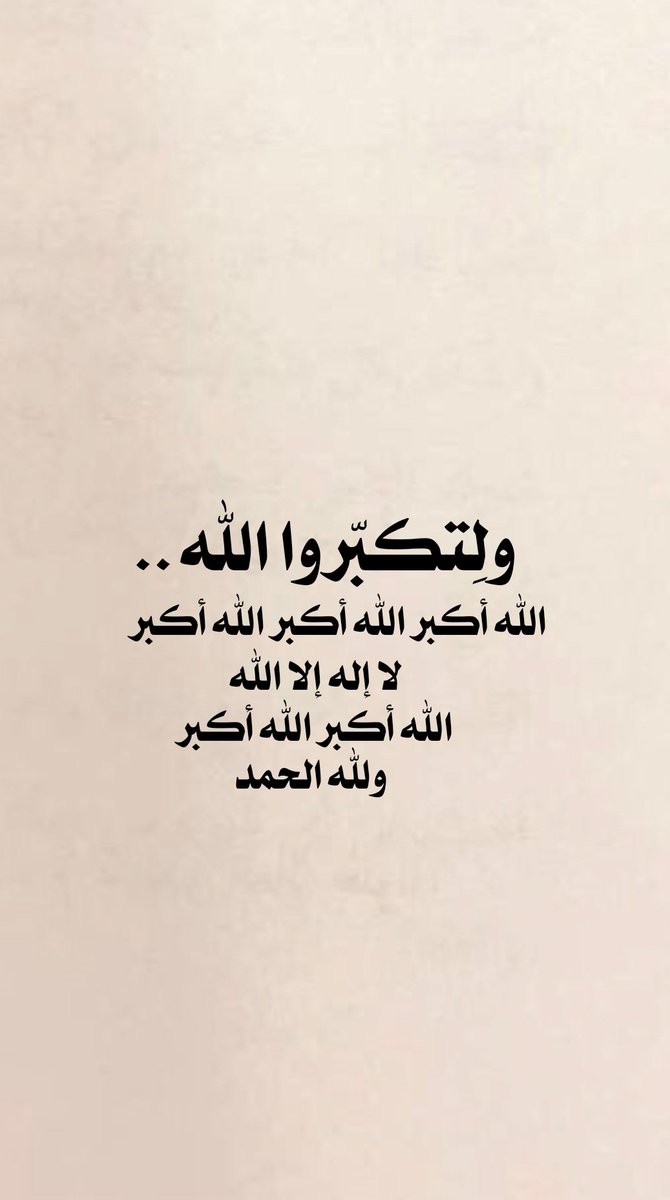 ولِتكبّروا الله ..
الله أكبر الله أكبر الله أكبر
لا إله إلا الله
الله أكبر الله أكبر
ولله الحمد